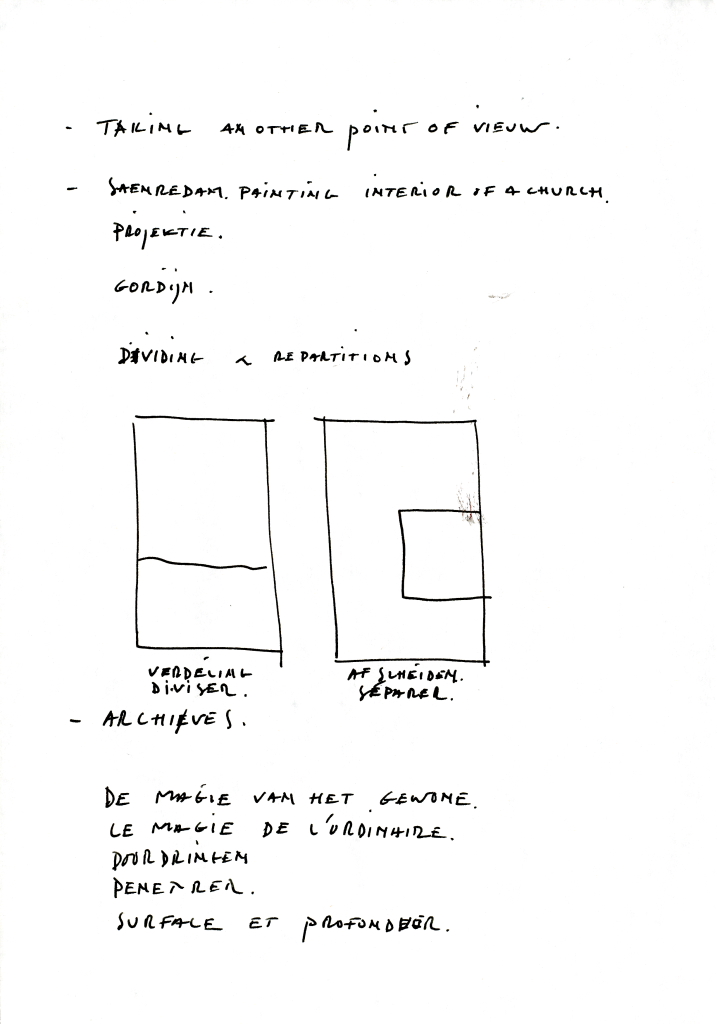 - TAKING ANOTHER POINT OF VIEUW.
- SAENREDAM. PAINTING INTERIOR OF A CHURCH.
PROJEKTIE.
GORDIJN.
DIVIDING & REPARTITIONS
VERDELING
DIVISER.
AFSCHEIDEN.
SÉPARER.
- ARCHIEVES.
DE MAGIE VAN HET GEWONE.
LE MAGIE DE L'ORDINAIRE.
DOORDRINGEN
PENETRER.
SURFACE ET PROFONDEUR.